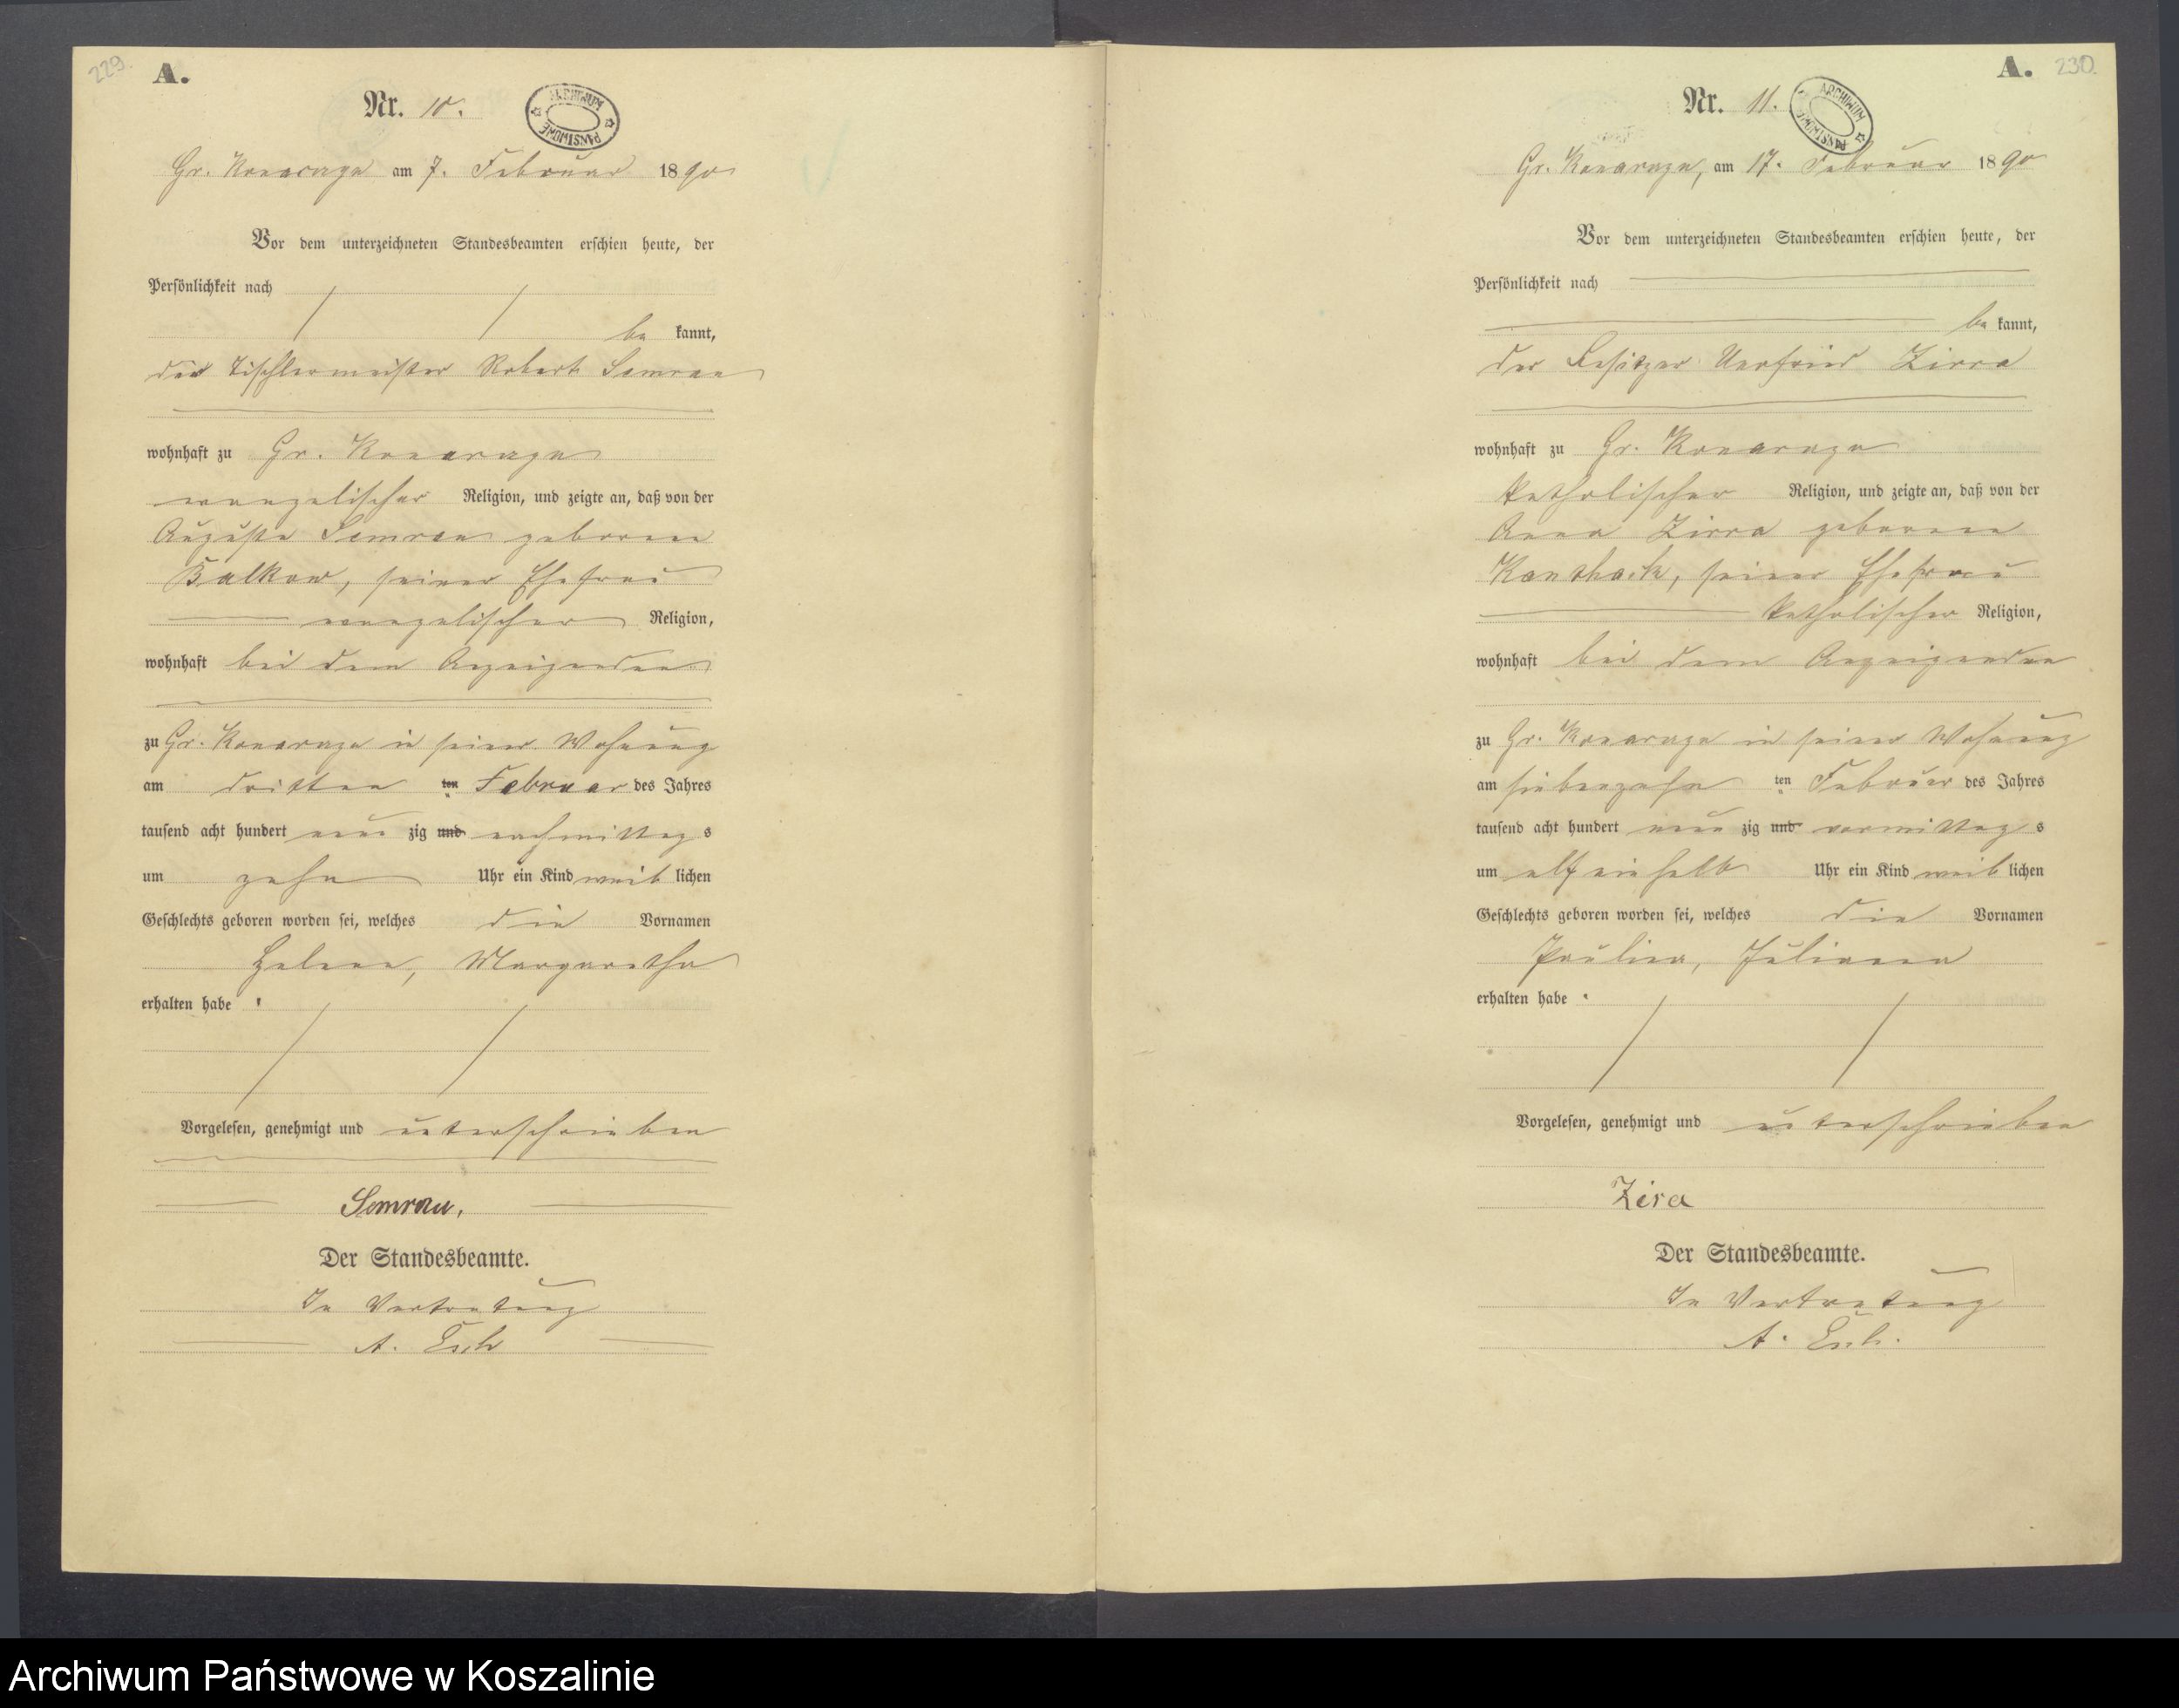 229.
A.
Nr. 10.
ARCHIWUM PAŃSTWOWE
Gr. Konarzyn am 7. Februar 1890
Vor dem unterzeichneten Standesbeamten erschien heute, der
Persönlichkeit nach
be kannt,
der Tischlermeister Robert Semrau
wohnhaft zu Gr. Konarzyn
evangelischer Religion, und zeigte an, daß von der
Auguste Semrau geborene
Balkow, seiner Ehefrau
evangelischer Religion,
wohnhaft bei dem Anzeigenden
zu Gr. Konarzyn in seiner Wohnung
am dritten ten Februar des Jahres
tausend acht hundert neun zig und nachmittag s
um zehn Uhr ein Kind weib lichen
Geschlechts geboren worden sei, welches die Vornamen
Helene, Margaretha
erhalten habe
Vorgelesen, genehmigt und unterschrieben
Semrau.
Der Standesbeamte.
In Vertretung
A.
A. 230.
Nr. 11.
ARCHIWUM PAŃSTWOWE
Gr. Konarzyn, am 17. Februar 1890
Vor dem unterzeichneten Standesbeamten erschien heute, der
Persönlichkeit nach
be kannt,
der Besitzer Zirra
wohnhaft zu Gr. Konarzyn
katholischer Religion, und zeigte an, daß von der
Anna Zirra geborene
seiner Ehefrau
katholischer Religion,
wohnhaft bei dem Anzeigenden
zu Gr. Konarzyn in seiner Wohnung
am siebenzehn ten Februar des Jahres
tausend acht hundert neun zig und vormittag s
um elf ein halb Uhr ein Kind weib lichen
Geschlechts geboren worden sei, welches die Vornamen
Paulina, Julianna
erhalten habe
Vorgelesen, genehmigt und unterschrieben
Zira
Der Standesbeamte.
In Vertretung
A.
Archiwum Państwowe w Koszalinie